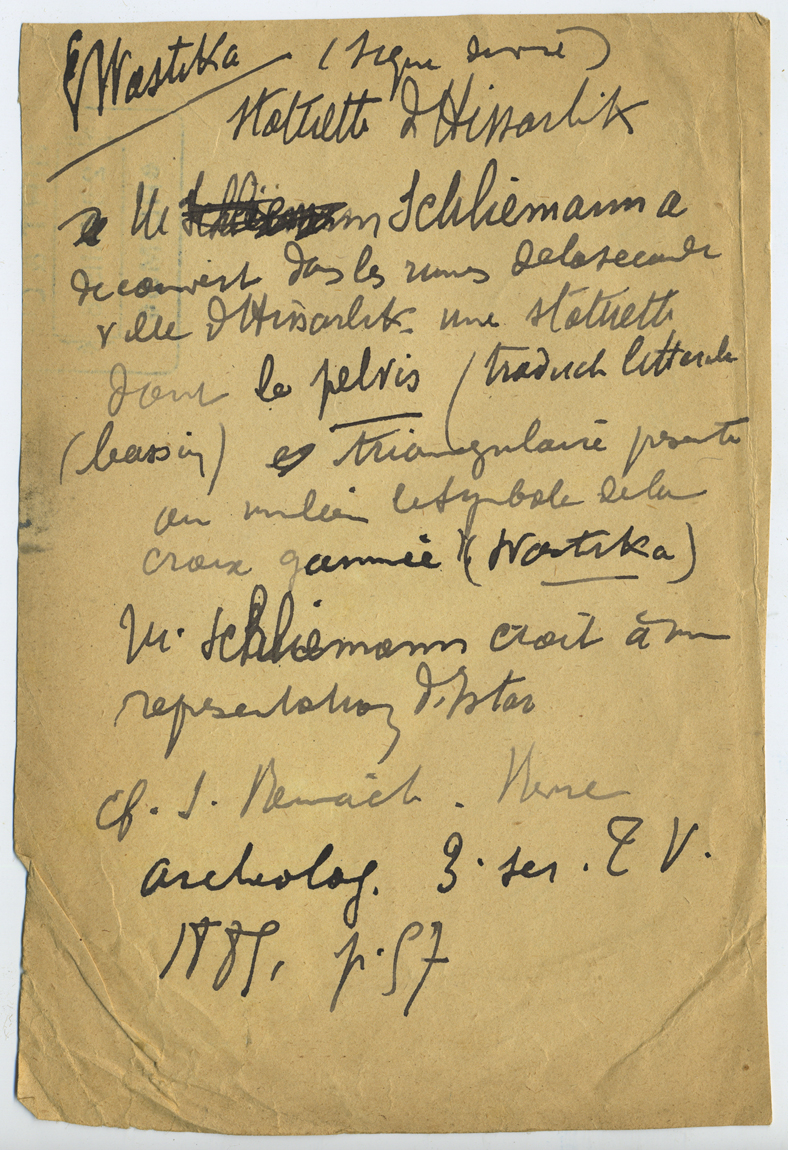 Swastika (signe divin)
statuette d'Hissarlik
a M Schliemann Schliemann a
decouvert dans les ruines de la seconde
ville d'Hissarlik une statuette
dont le pelvis (traduct litterale
(bassin) est triangulaire presente
au milieu le symbole de la
croix gammée (swastika)
M. Schliemann croit à une
representation d'Istar
cf. S. Reinach. Revue
archeolog. 3. ser. T V.
1885, p. 97